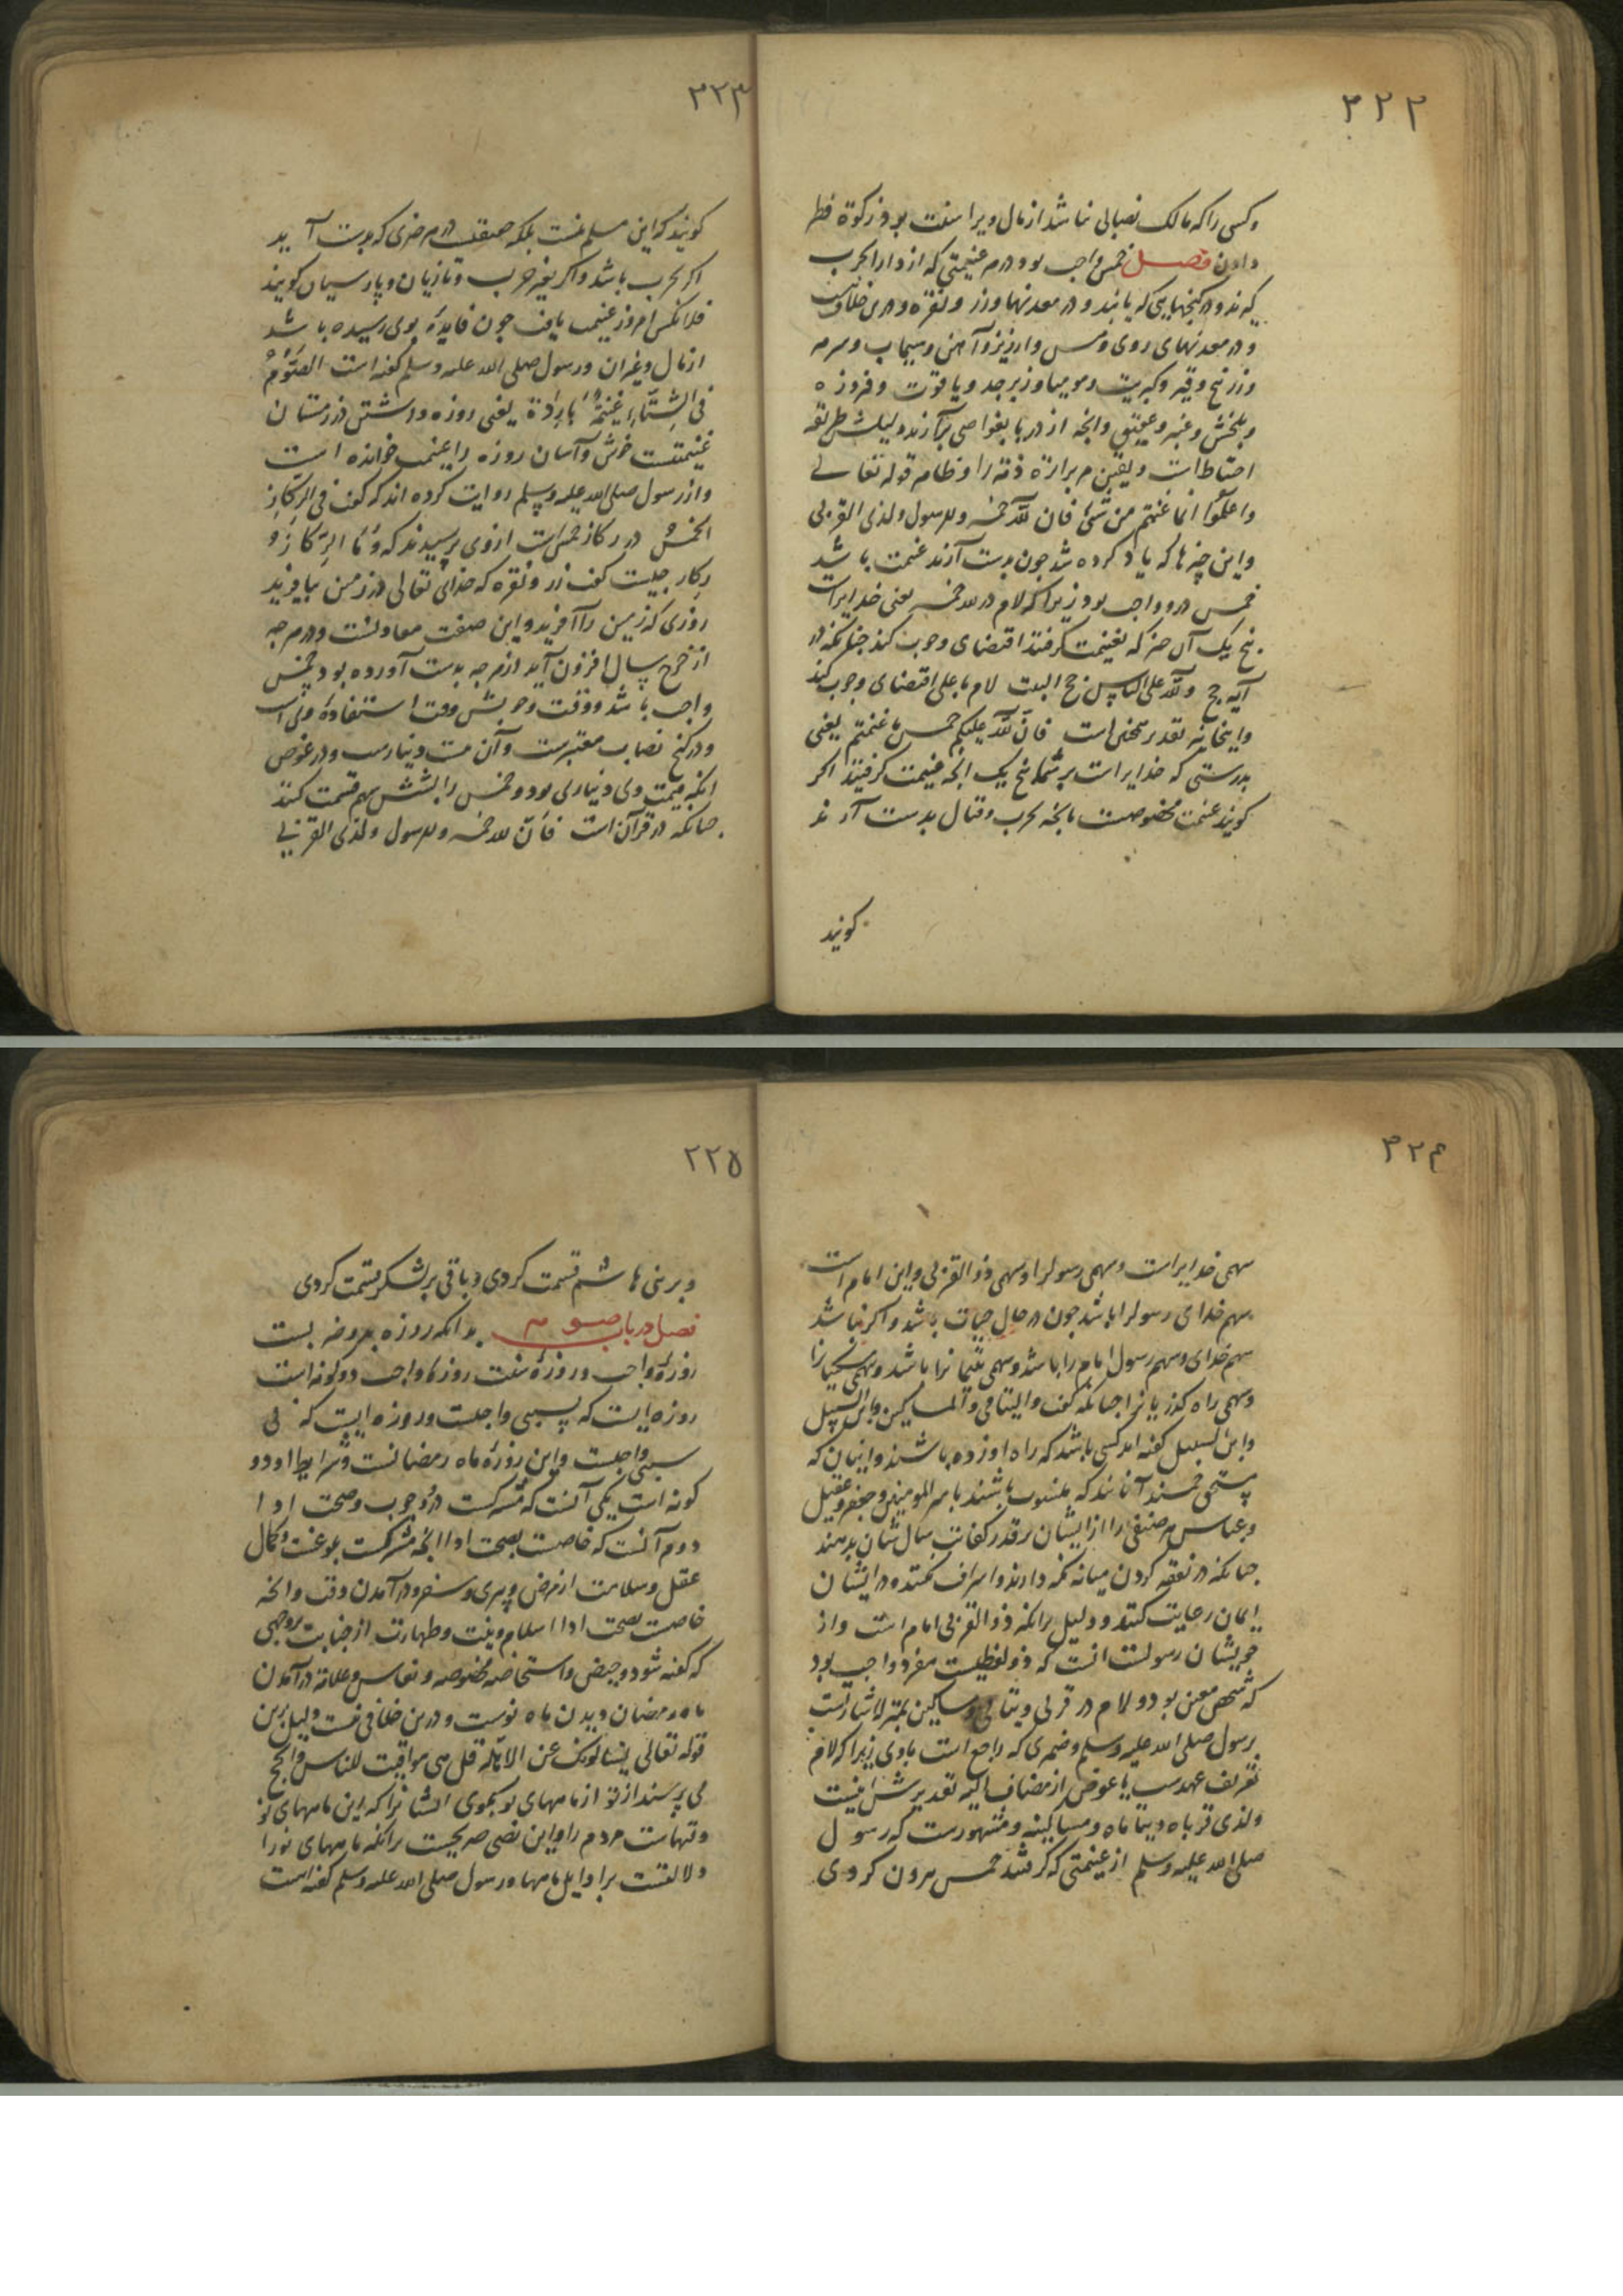 ۳۲۲
وکسی را که مالک نصابی نباشد از مال ویرا سنت بود زکوة فطر
دادن فصل خمس واجب بود در هر غنیمتی که از دار الحرب
کیرند و در کنجهایی که یابند و در معدنها و زر و نقره و درین خلاف
و در معدنهای روی و مس و ارزیز و آهن و سیماب و سرمه
و زرنیخ و قیر و کبریت و مومیا و زبرجد و یاقوت و فیروزه
و بلخش و عنبر و عقیق و انچه از دریا بغواصی برآرند ولیکن طریقه
احتیاط است و یقین بر براءة ذمه را و ظاهر قوله تعالی
واعلموا انما غنمتم من شئ فان لله خمسه وللرسول ولذی القربی
و این چیزها که یاد کرده شد جون بدست آرند غنیمت باشد
خمس درو واجب بود زیرا که لام در لله خمسه یعنی خدایراست
پنج یک آن جیز که بغنیمت کرفتند اقتضای وجوب کند جنانکه در
آیه حج ولله علی الناس حج البیت لام با علی اقتضای وجوب کند
و اینجا نیز تقدیر همچنین است فان لله علیکم خمس ما غنمتم یعنی
بدرستی که خدایراست بر شما پنج یک انچه غنیمت کرفتید اکر
کویند غنیمت مخصوصست بانچه بحرب و قتال بدست آرند
کویند
۳۲۳
کویند که این مسلم نیست بلکه حقیقتست در هر خیری که بدست آید
اکر بحرب باشد و اکر بغیر حرب و تازیان و پارسیان کویند
فلانکس امروز غنیمت یافت جون فایدهٔ بوی رسیده باشد
از مال و غیر آن و رسول صلی الله علیه وسلم کفته است الصَّومُ
فی الشتاءِ غنیمةٌ باردة یعنی روزه داشتن در زمستان
غنیمتیست خوش و آسان روزه را غنیمت خوانده است
و از رسول صلی الله علیه وسلم روایت کرده اند که کفت فی الرکازِ
الخمسُ در رکاز خمس است ازوی پرسیدند که وَمَا الرِّکازُ و
رکاز جیست کفت زر و نقره که خدای تعالی در زمین بیافرید
روزی که زمین را آفرید و این صفت معادنست و در هر جه
از خرج سال افزون آید از هر جه بدست آورده بود خمس
واجب باشد و وقت وجوبش وقت استفادهٔ ویست
و در کنج نصاب معتبرست و آن بیست دینارست و در غوص
انکه قیمت وی دیناری بود و خمس را بشش سهم قسمت کنند
جنانکه در قرآن است فان لله خمسه وللرسول ولذی القربی
۳۲۴
سهمی خدایراست و سهمی رسولرا و سهمی ذو القربی و این امام است
سهم خدای رسولرا باشد جون در حال حیات باشد و اکر نباشد
سهم خدای و سهم رسول امام را باشد و سهمی یتیمانرا باشد و سهمی مسکینانرا
و سهمی راه کذریانرا جنانکه کفت والیتامی والمساکین وابن السبیل
و ابن السبیل کفته اند کسی باشد که راه او زده باشند و اینان که
مستحق خمسند آنانند که منسوب باشند بامیر المومنین و جعفر و عقیل
و عباس هر صنفی را از ایشان بر قدر کفایت سال شان بدهند
جنانکه در نفقه کردن میانه نکه دارند و اسراف نکنند و در ایشان
ایمان رعایت کنند و دلیل برانکه ذو القربی امام است و از
خویشان رسولست انست که ذو لفظیست مفرد واجب بود
که شخص معین بود و لام در قربی و یتامی و مساکین بمنزله اشارتست
برسول صلی الله علیه وسلم و ضمیری که راجع است باوی زیرا که لام
تعریف عهدست یا عوض از مضاف الیه تقدیرش اینست
ولذی قرباه ویتاماه ومساکینه و مشهورست که رسول
صلی الله علیه وسلم از غنیمتی که کرفتند خمس بیرون کردی
۲۲۵
و بر بنی هاشم قسمت کردی و باقی بر لشکر قسمت کردی
فصل در باب صوم بدانکه روزه بر دو ضربست
روزهٔ واجب و روزهٔ سنت روزهٔ واجب دو کونه است
روزه ایست که بسببی واجبست و روزه ایست که بی
سببی واجبست و این روزهٔ ماه رمضانست و شرایط او دو
کونه است یکی آنست که مشترکست در وجوب و صحت ادا
دوم آنست که خاصست بصحت ادا انچه مشترکست بلوغست و کمال
عقل و سلامت از مرض و پیری و سفر و در آمدن وقت و انچه
خاصست بصحت ادا اسلام و نیت و طهارت از جنابت بر وجهی
که کفته شود و حیض و استحاضه مخصوصه و نفاس و علامة در آمدن
ماه رمضان دیدن ماه نوست و درین خلافی نیست دلیل برین
قوله تعالی یسئلونک عن الاهلة قل هی مواقیت للناس والحج
می پرسند از تو از ماههای نو بکوی ایشانرا که این ماههای نو
وقتهاست مردم را و این نصی صریحست برانکه ماههای نو را
دلالتست بر اوایل ماهها و رسول صلی الله علیه وسلم کفته است